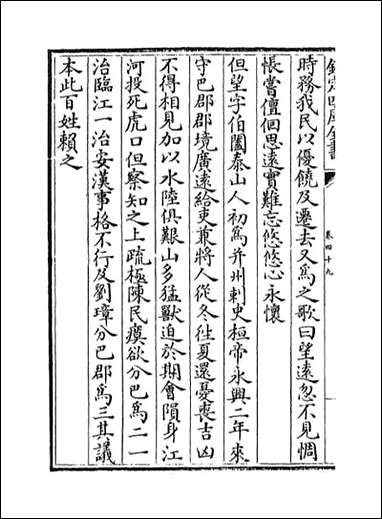 欽定四庫全書
卷四十九
時務我民以優饒及遷去又為之歌曰望遠忽不見惆
悵嘗儃佪思遠實難忘悠悠心永懷
但望字伯闔泰山人初為并州刺史桓帝永興二年來
守巴郡郡境廣遠給吏兼將人從冬往夏還憂喪吉凶
不得相見加以水陸俱艱山多猛獸迫於期會隕身江
河投死虎口但察知之上疏極陳民瘼欲分巴為二一
治臨江一治安漢事格不行及劉璋分巴郡為三其議
本此百姓賴之